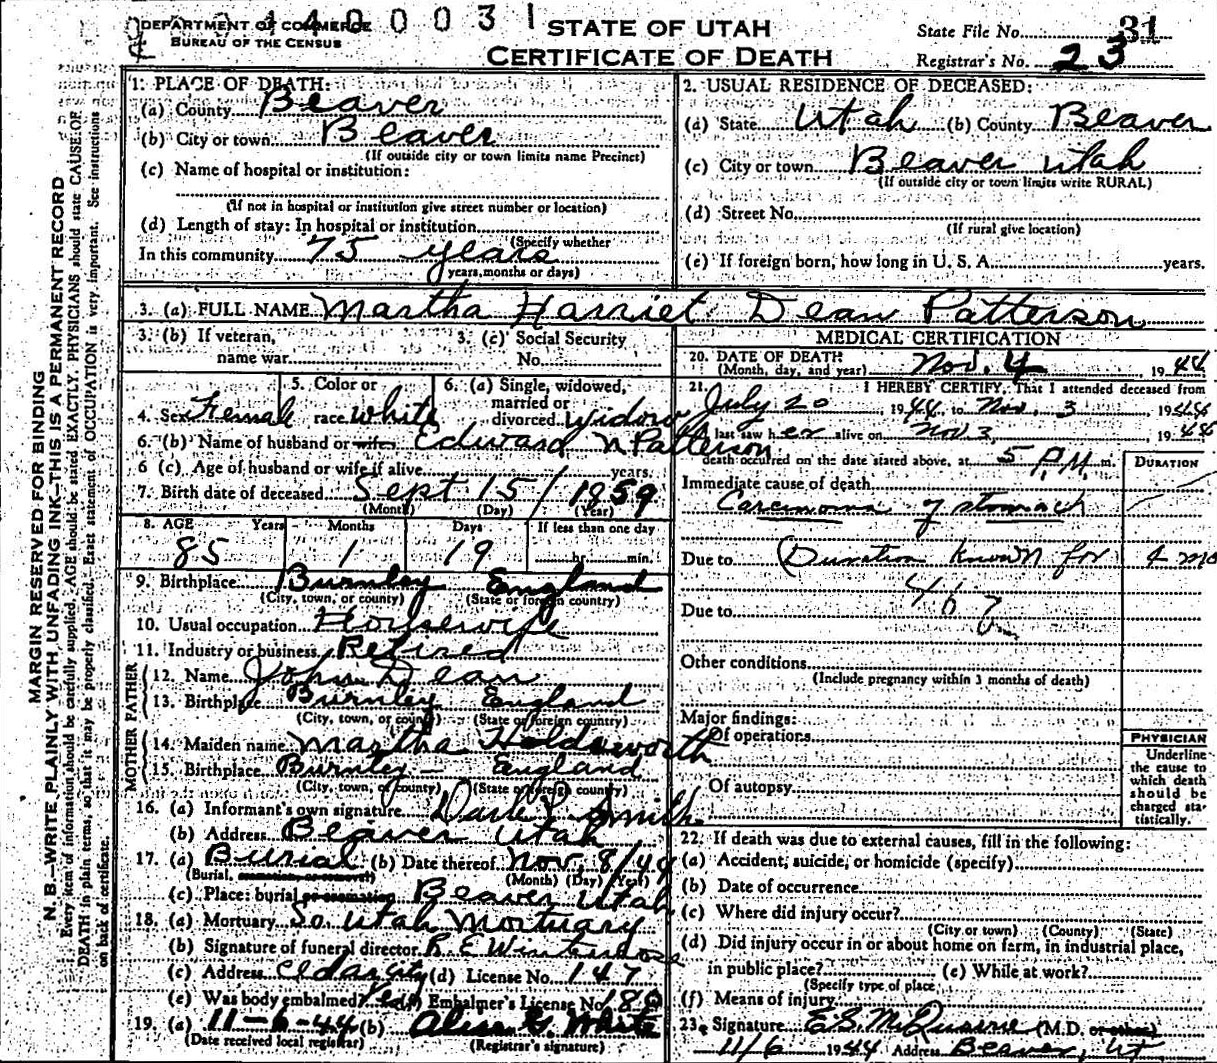 DEPARTMENT OF COMMERCE
BUREAU OF THE CENSUS
1400031
STATE OF UTAH
CERTIFICATE OF DEATH
State File No. 31
Registrar's No. 23
MARGIN RESERVED FOR BINDING
N. B.—WRITE PLAINLY WITH UNFADING INK—THIS IS A PERMANENT RECORD
Every item of information should be carefully supplied. AGE should be stated EXACTLY. PHYSICIANS should state CAUSE OF
DEATH in plain terms, so that it may be properly classified. Exact statement of OCCUPATION is very important. See instructions
on back of certificate.
1. PLACE OF DEATH:
(a) County Beaver
(b) City or town Beaver
(If outside city or town limits name Precinct)
(c) Name of hospital or institution:
(If not in hospital or institution give street number or location)
(d) Length of stay: In hospital or institution
(Specify whether
In this community 75 years
years, months or days)
2. USUAL RESIDENCE OF DECEASED:
(a) State Utah (b) County Beaver
(c) City or town Beaver Utah
(If outside city or town limits write RURAL)
(d) Street No.
(If rural give location)
(e) If foreign born, how long in U. S. A. years.
3. (a) FULL NAME Martha Harriet Dean Patterson
3. (b) If veteran,
name war
3. (c) Social Security
No.
4. Sex Female
5. Color or
race White
6. (a) Single, widowed,
married or
divorced Widow
6. (b) Name of husband or wife Edward N Patterson
6 (c). Age of husband or wife if alive years.
7. Birth date of deceased Sept 15/1859
(Month) (Day) (Year)
8. AGE Years Months Days If less than one day
85 1 19 hr. min.
9. Birthplace Burnley England
(City, town, or county) (State or foreign country)
10. Usual occupation Housewife
11. Industry or business Retired
FATHER
12. Name John Dean
13. Birthplace Burnley England
(City, town, or county) (State or foreign country)
MOTHER
14. Maiden name Martha Holdsworth
15. Birthplace Burnley — England
(City, town, or county) (State or foreign country)
16. (a) Informant's own signature Smith
(b) Address Beaver Utah
17. (a) Burial (b) Date thereof Nov. 8/44
(Burial, cremation or removal) (Month) (Day) (Year)
(c) Place: burial or cremation Beaver Utah
18. (a) Mortuary So. Utah Mortuary
(b) Signature of funeral director R. E. Winterrose
(c) Address Cedar City (d) License No. 147
(e) Was body embalmed? Yes (f) Embalmer's License No. 180
19. (a) 11-6-44 (b) White
(Date received local registrar) (Registrar's signature)
MEDICAL CERTIFICATION
20. DATE OF DEATH
(Month, day, and year) Nov. 4 1944
21. I HEREBY CERTIFY, That I attended deceased from
July 20, 1944, to Nov. 3 1944
I last saw her alive on Nov 3 1944
death occurred on the date stated above, at 5 P.M. m.
DURATION
Immediate cause of death
Carcinoma of stomach
Due to (Duration known for 4 mo
46
Due to
Other conditions
(Include pregnancy within 3 months of death)
Major findings:
Of operations
Of autopsy
PHYSICIAN
Underline
the cause to
which death
should be
charged sta-
tistically.
22. If death was due to external causes, fill in the following:
(a) Accident, suicide, or homicide (specify)
(b) Date of occurrence
(c) Where did injury occur?
(City or town) (County) (State)
(d) Did injury occur in or about home on farm, in industrial place,
in public place? (e) While at work?
(Specify type of place)
(f) Means of injury
23. Signature E. S. McQuarrie (M.D. or other)
11/6 1944 Address Beaver, Ut